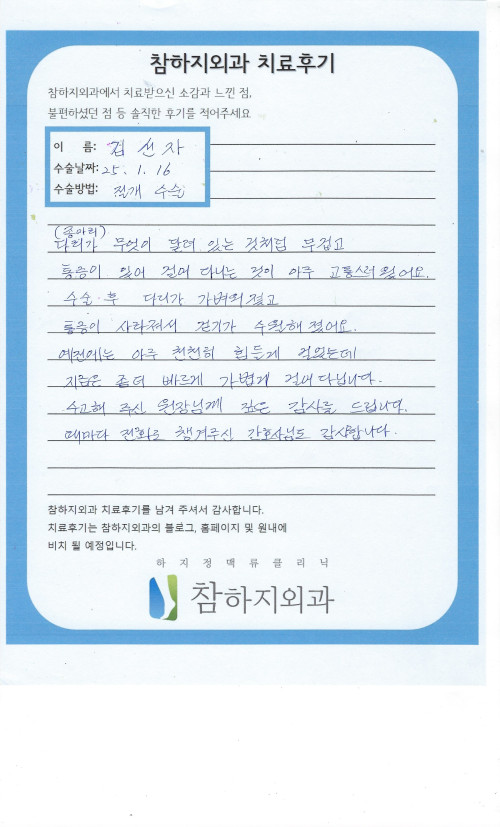 참하지외과 치료후기
참하지외과에서 치료받으신 소감과 느낀 점,
불편하셨던 점 등 솔직한 후기를 적어주세요
이 름: 김선자
수술날짜: 25. 1. 16
수술방법: 절개 수술
(종아리)
다리가 무엇이 달려 있는 것처럼 무겁고
통증이 있어 걸어 다니는 것이 아주 고통스러웠어요.
수술 후 다리가 가벼워졌고
통증이 사라져서 걷기가 수월해졌어요.
예전에는 아주 천천히 힘들게 걸었는데
지금은 좀더 빠르게 가볍게 걸어다닙니다.
수고해 주신 원장님께 깊은 감사를 드립니다.
때마다 전화로 챙겨주신 간호사님도 감사합니다.
참하지외과 치료후기를 남겨 주셔서 감사합니다.
치료후기는 참하지외과의 블로그, 홈페이지 및 원내에
비치 될 예정입니다.
하지정맥류클리닉
참하지외과